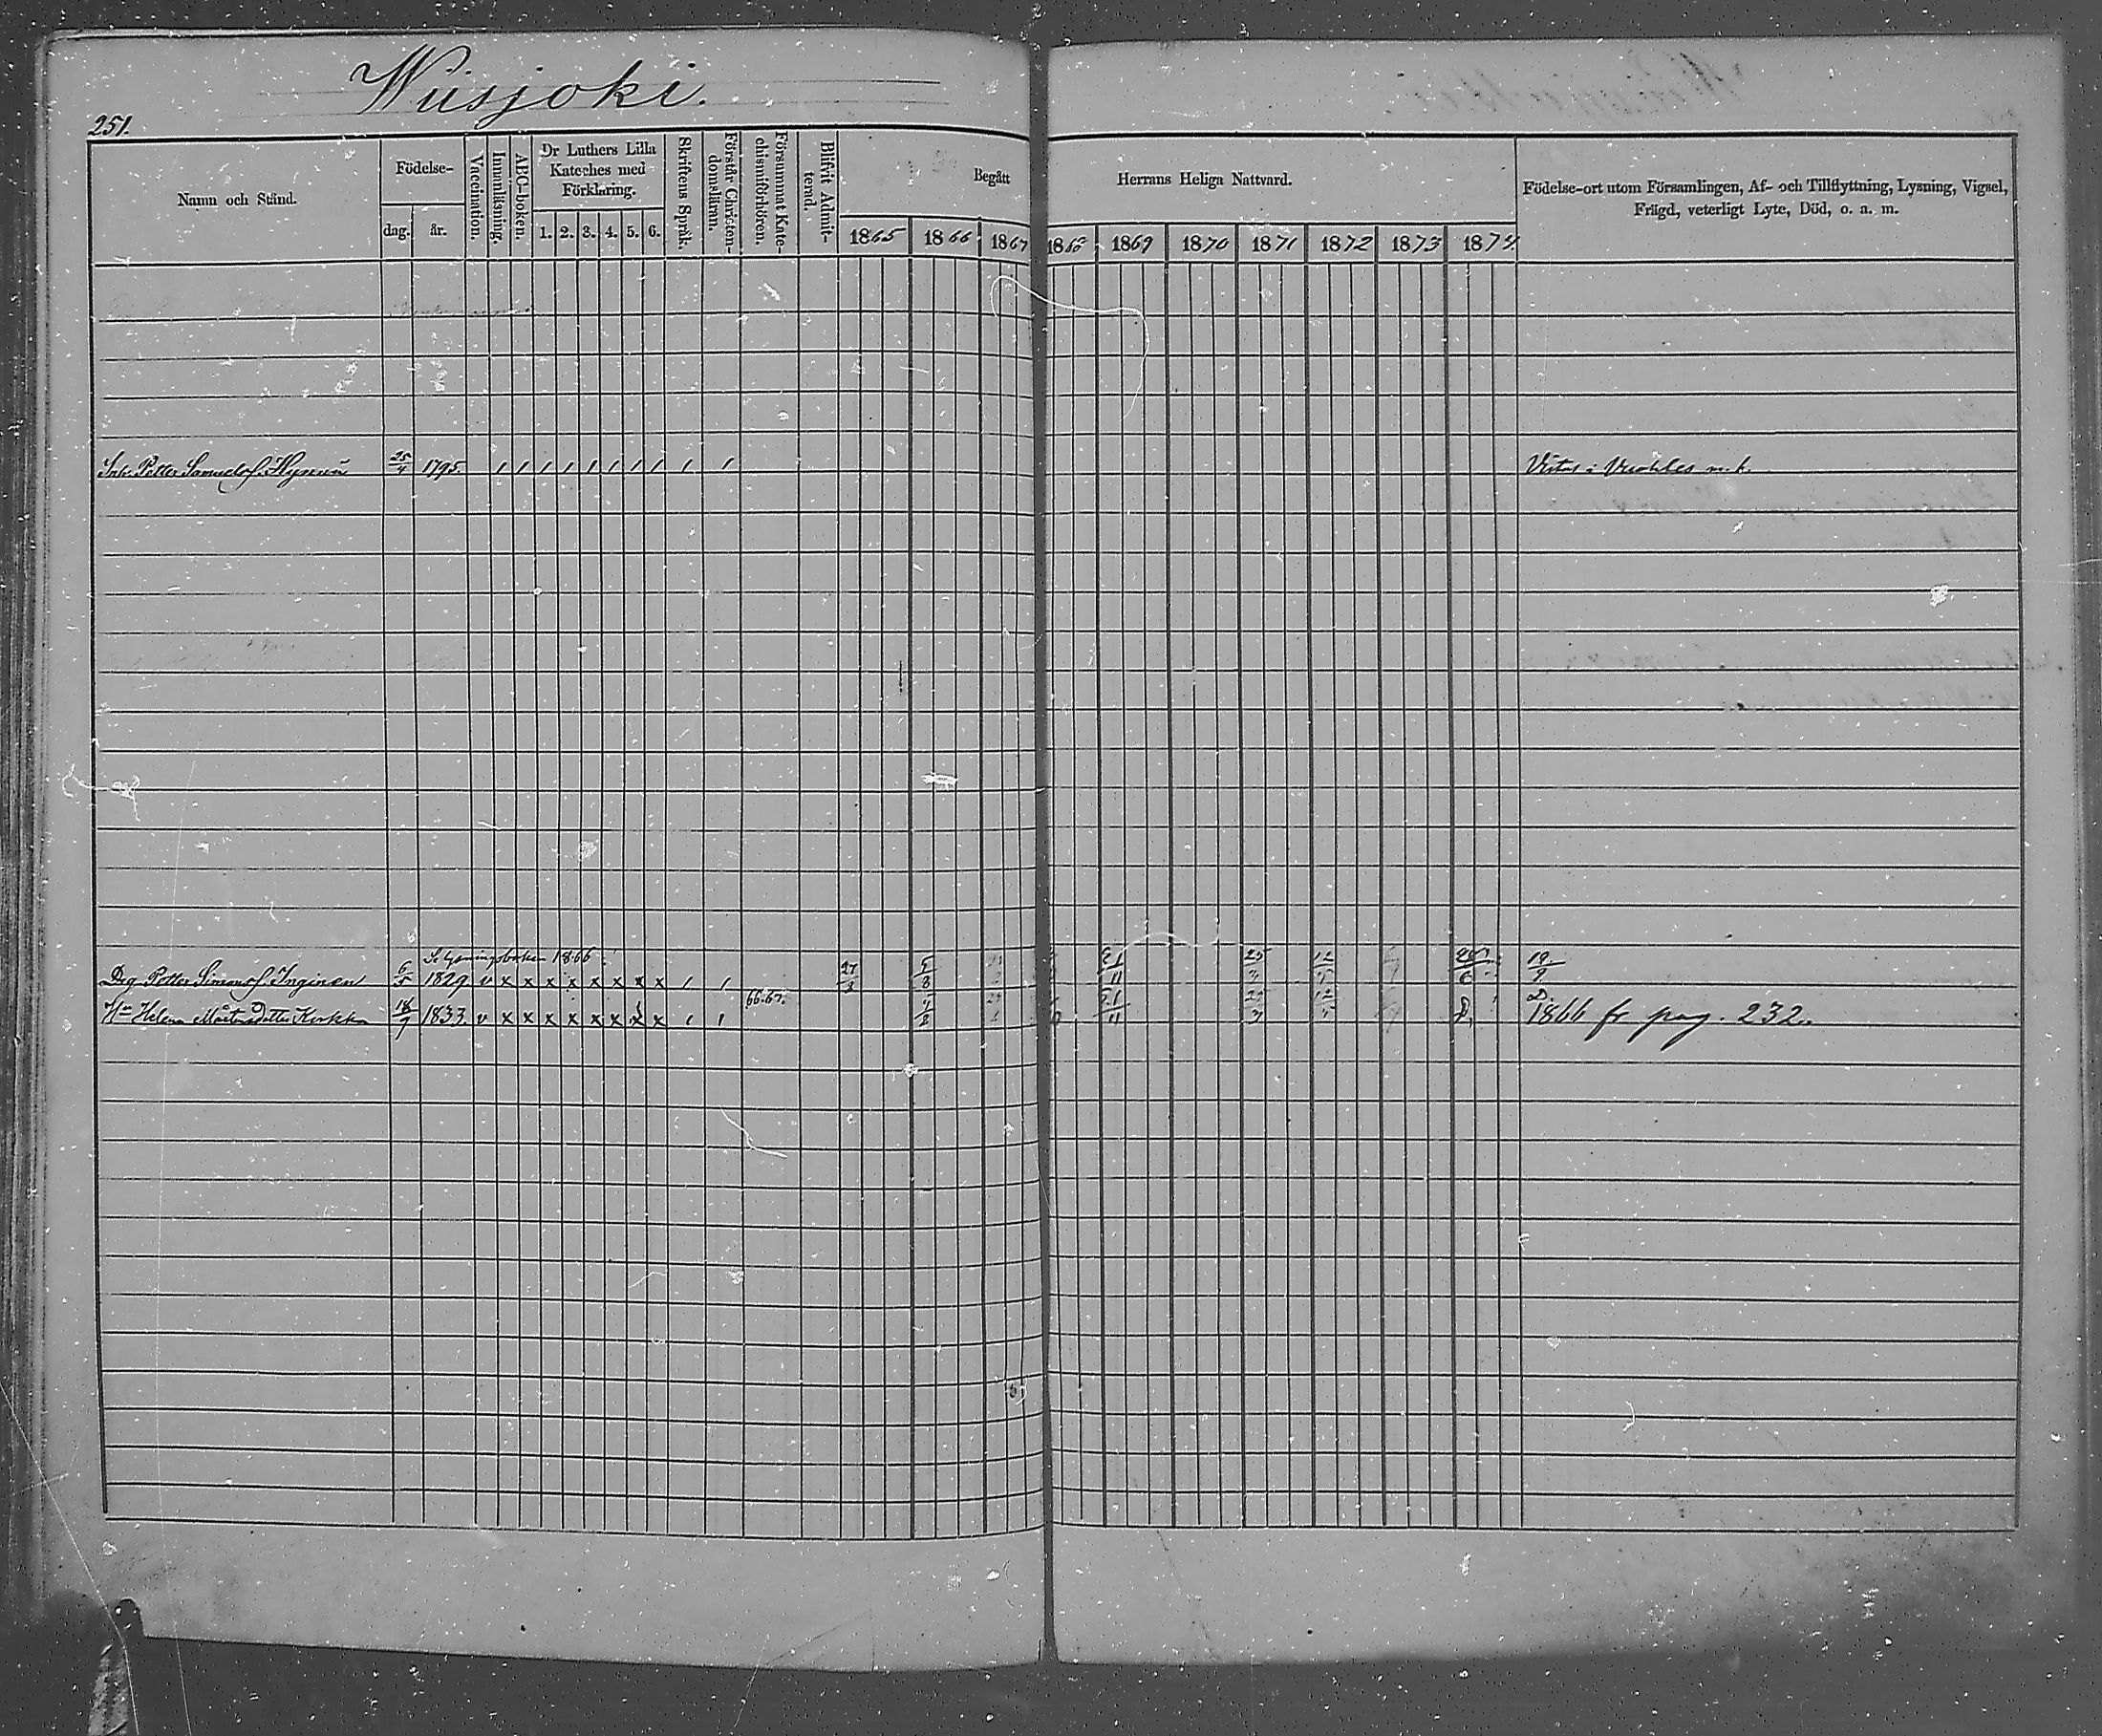 Wiisjoki.
251.
Namn och Stånd.
Födelse-
dag.
år.
Vaccination.
Innanläsning.
ABC-boken.
Dr Luthers Lilla
Kateches med
Förklaring.
1. 2. 3. 4. 5. 6.
Skriftens Språk.
Förstår Christen-
domsläran.
Försummat Kate-
chismiförhören.
Blifvit Admit-
terad.
Begått Herrans Heliga Nattvard.
1865 1866 1867 1868 1869 1870 1871 1872 1873 1874
Födelse-ort utom Församlingen, Af- och Tillflyttning, Lysning, Vigsel,
Frägd, veterligt Lyte, Död, o. a. m.
Petter Samuelss. 25/4 1795. / / / / / / / / / / / Vistas i
1866
Petter Simonss. Inginen 6/5 1829. v x x x x x x x x / / 27/3 5/8 21/11 25 12 19/9
66.67.
Hu Helena Mårtensdotter Kirkko 18/7 1833. v x x x x x x x x / / 1866 fr pag. 232.